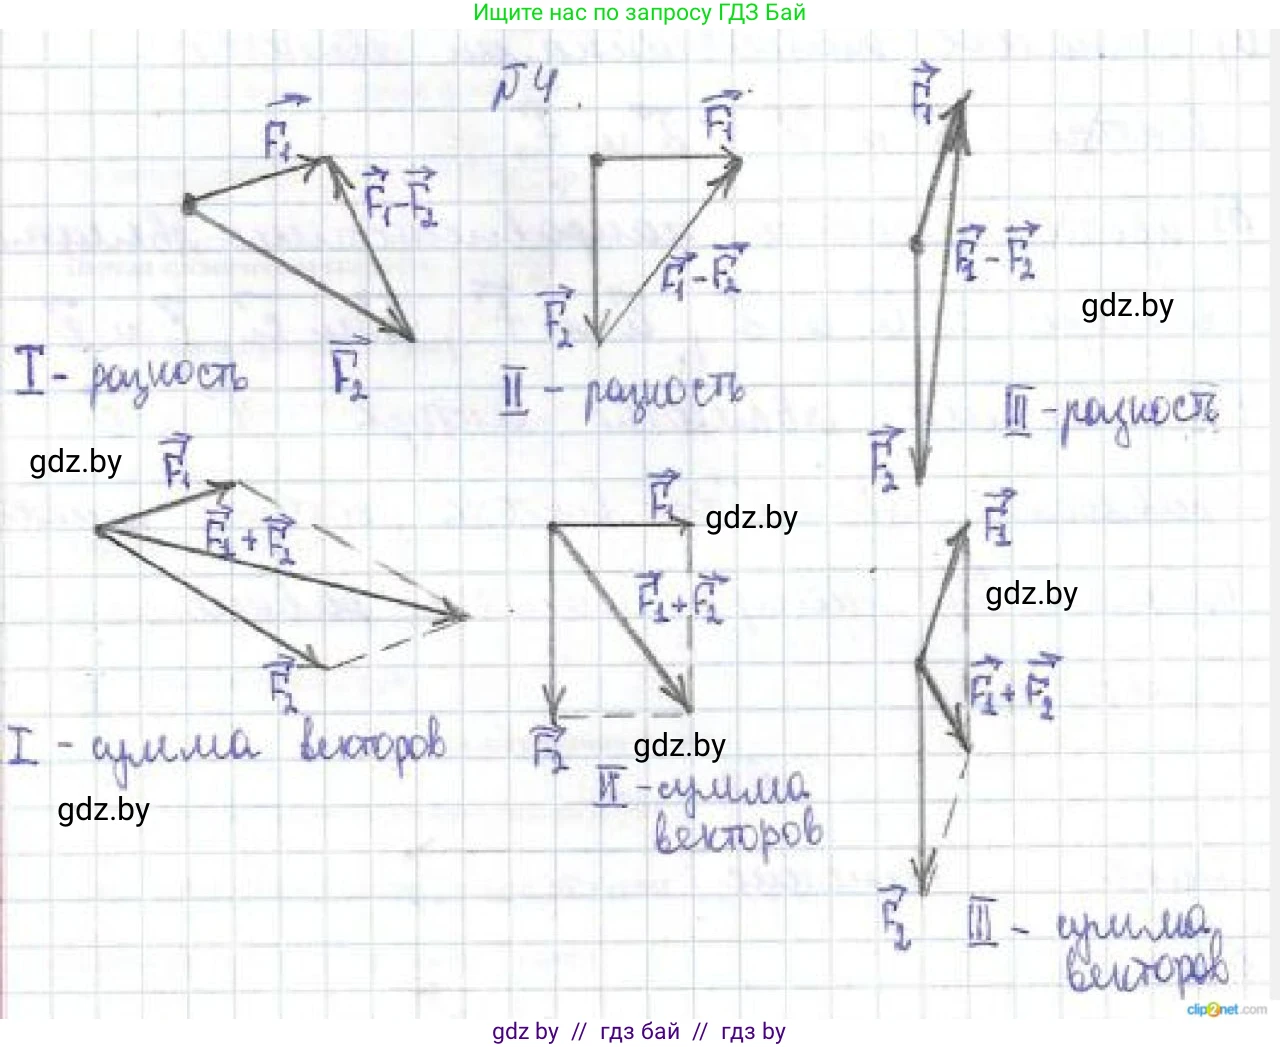 Ищите нас по запросу ГДЗ Бай
№4.
F₁
F₁-F₂
F₂
I - разность
F₁
F₁-F₂
F₂
II - разность
F₁
F₁-F₂
F₂
gdz.by
III - разность
gdz.by
F₁
F₁+F₂
F₂
I - сумма векторов
gdz.by
F₁
gdz.by
F₁+F₂
F₂
gdz.by
II - сумма
векторов
F₁
gdz.by
F₁+F₂
F₂
III - сумма
векторов
clip2net.com
gdz by // гдз бай // гдз by